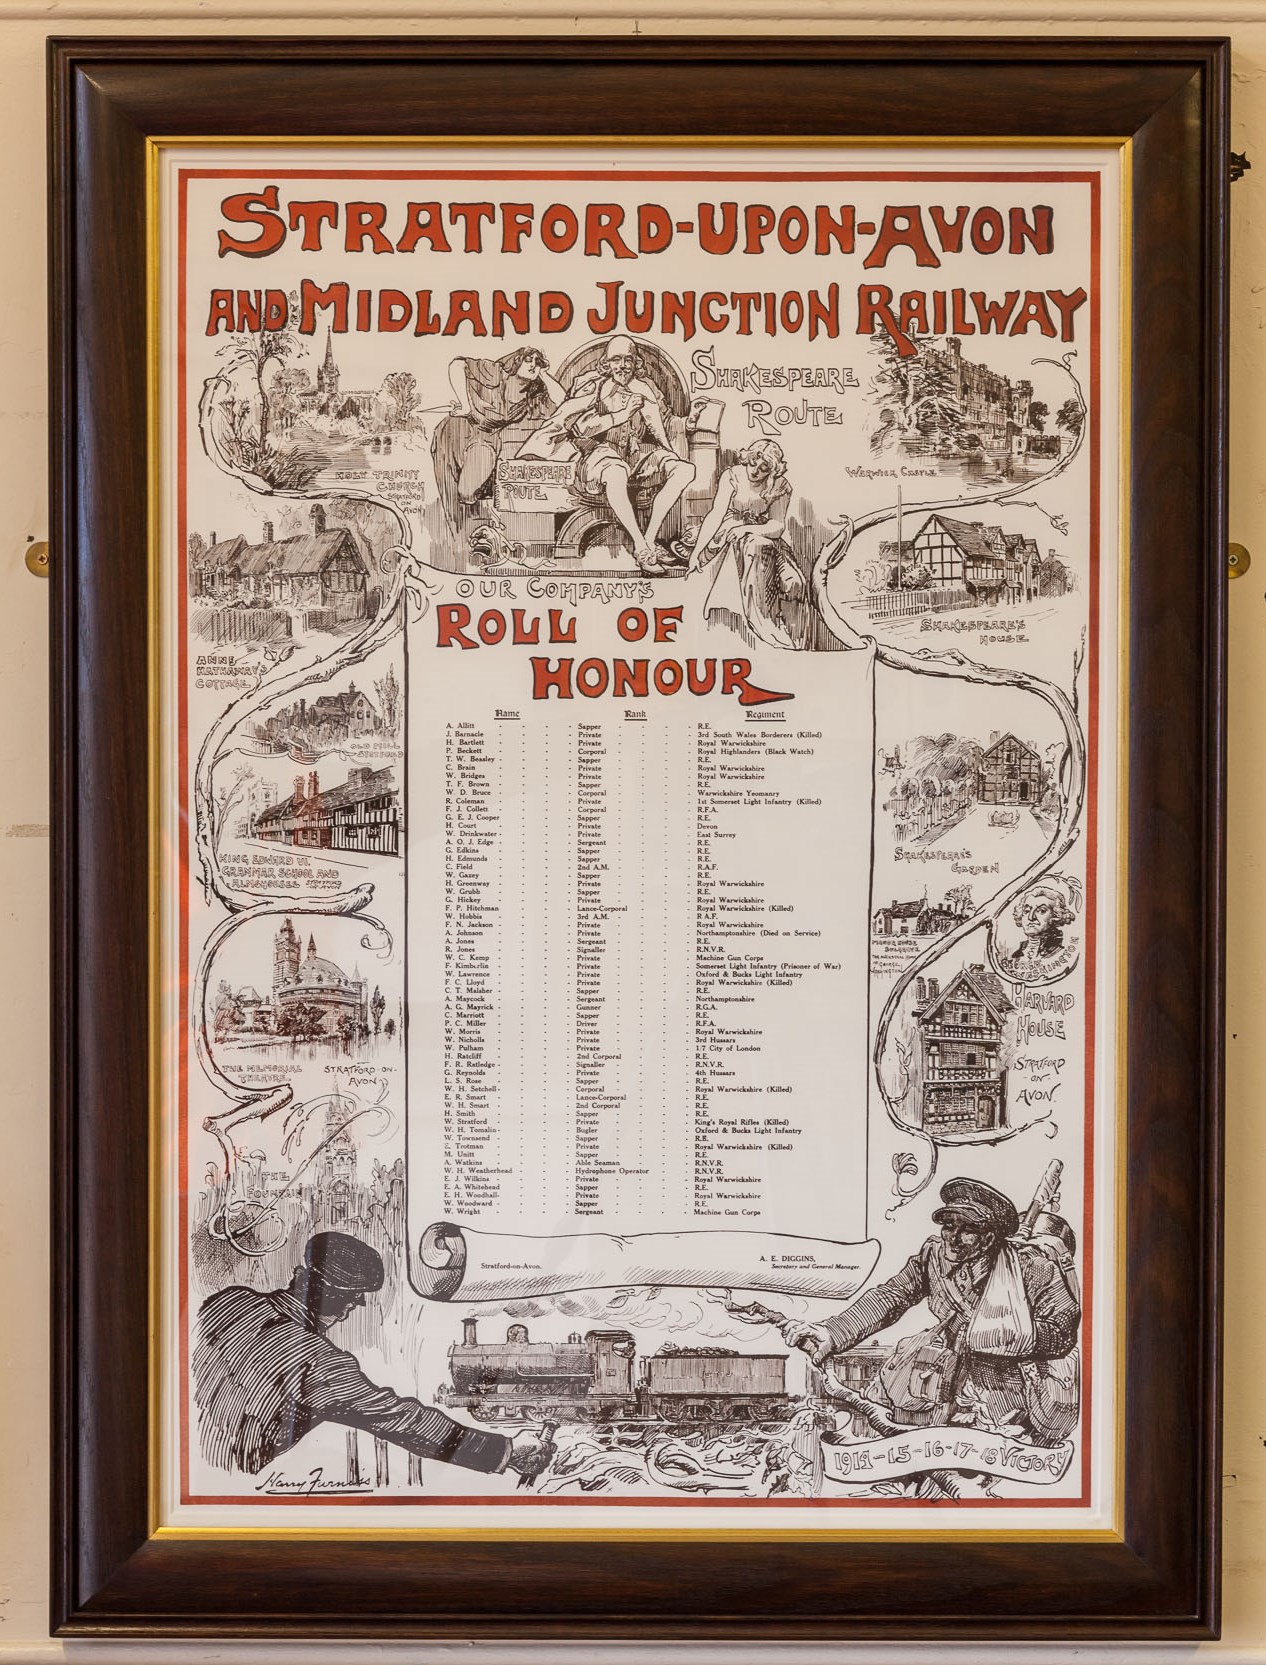 STRATFORD-UPON-AVON
AND MIDLAND JUNCTION RAILWAY
SHAKESPEARE
ROUTE
HOLY TRINITY
CHURCH
STRATFORD
ON
AVON
SHAKESPEARE
ROUTE
WARWICK CASTLE
ANNE
HATHAWAY'S
COTTAGE
SHAKESPEARE'S
HOUSE
OUR COMPANY'S
ROLL OF
HONOUR
Name Rank Regiment
A. Allitt - - - - Sapper - - - - R.E.
J. Barnacle - - - - Private - - - - 3rd South Wales Borderers (Killed)
H. Bartlett - - - - Private - - - - Royal Warwickshire
P. Beckett - - - - Corporal - - - - Royal Highlanders (Black Watch)
T. W. Beasley - - - - Sapper - - - - R.E.
C. Brain - - - - Private - - - - Royal Warwickshire
W. Bridges - - - - Private - - - - Royal Warwickshire
T. F. Brown - - - - Sapper - - - - R.E.
W. D. Bruce - - - - Corporal - - - - Warwickshire Yeomanry
R. Coleman - - - - Private - - - - 1st Somerset Light Infantry (Killed)
F. J. Collett - - - - Corporal - - - - R.F.A.
G. E. J. Cooper - - - - Sapper - - - - R.E.
H. Court - - - - Private - - - - Devon
W. Drinkwater - - - - Private - - - - East Surrey
A. O. J. Edge - - - - Sergeant - - - - R.E.
G. Edkins - - - - Sapper - - - - R.E.
H. Edmunds - - - - Sapper - - - - R.E.
C. Field - - - - 2nd A.M. - - - - R.A.F.
W. Gazey - - - - Sapper - - - - R.E.
H. Greenway - - - - Private - - - - Royal Warwickshire
W. Grubb - - - - Sapper - - - - R.E.
G. Hickey - - - - Private - - - - Royal Warwickshire
F. P. Hitchman - - - - Lance-Corporal - - - - Royal Warwickshire (Killed)
W. Hobbis - - - - 3rd A.M. - - - - R A.F.
F. N. Jackson - - - - Private - - - - Royal Warwickshire
A. Johnson - - - - Private - - - - Northamptonshire (Died on Service)
A. Jones - - - - Sergeant - - - - R.E.
R. Jones - - - - Signaller - - - - R.N.V.R.
W. C. Kemp - - - - Private - - - - Machine Gun Corps
F. Kimberlin - - - - Private - - - - Somerset Light Infantry (Prisoner of War)
W. Lawrence - - - - Private - - - - Oxford & Bucks Light Infantry
F. C. Lloyd - - - - Private - - - - Royal Warwickshire (Killed)
C. T. Malsher - - - - Sapper - - - - R.E.
A. Maycock - - - - Sergeant - - - - Northamptonshire
A. G. Mayrick - - - - Gunner - - - - R.G.A.
C. Marriott - - - - Sapper - - - - R.E.
P. C. Miller - - - - Driver - - - - R.F.A.
W. Morris - - - - Private - - - - Royal Warwickshire
W. Nicholls - - - - Private - - - - 3rd Hussars
W. Pulham - - - - Private - - - - 1/7 City of London
H. Ratcliff - - - - 2nd Corporal - - - - R.E.
F. R. Ratledge - - - - Signaller - - - - R.N.V.R.
G. Reynolds - - - - Private - - - - 4th Hussars
L. S. Rose - - - - Sapper - - - - R.E.
W. H. Setchell - - - - Corporal - - - - Royal Warwickshire (Killed)
E. R. Smart - - - - Lance-Corporal - - - - R.E.
W. H. Smart - - - - 2nd Corporal - - - - R.E.
H. Smith - - - - Sapper - - - - R.E.
W. Stratford - - - - Private - - - - King's Royal Rifles (Killed)
W. H. Tomalin - - - - Bugler - - - - Oxford & Bucks Light Infantry
W. Townsend - - - - Sapper - - - - R.E.
E. Trotman - - - - Private - - - - Royal Warwickshire (Killed)
M. Unitt - - - - Sapper - - - - R.E.
A. Watkins - - - - Able Seaman - - - - R.N.V.R.
W. H. Weatherhead - - - - Hydrophone Operator - - - - R.N.V.R.
E. J. Wilkins - - - - Private - - - - Royal Warwickshire
E. A. Whitehead - - - - Sapper - - - - R.E.
E. H. Woodhall - - - - Private - - - - Royal Warwickshire
W. Woodward - - - - Sapper - - - - R.E.
W. Wright - - - - Sergeant - - - - Machine Gun Corps
OLD MILL
STRATFORD
KING EDWARD VI.
GRAMMAR SCHOOL AND
ALMSHOUSES
SHAKESPEARE'S
GARDEN
MANOR HOUSE
SULGRAVE
THE ANCESTRAL HOME
OF GEORGE
WASHINGTON
GEORGE
WASHINGTON
HARVARD
HOUSE
STRATFORD
-ON-
AVON.
THE MEMORIAL
THEATRE.
STRATFORD-ON-
AVON
THE
FOUNTAIN
A. E. DIGGINS,
Stratford-on-Avon. Secretary and General Manager.
1914-15-16-17-18 VICTORY
Harry Furniss